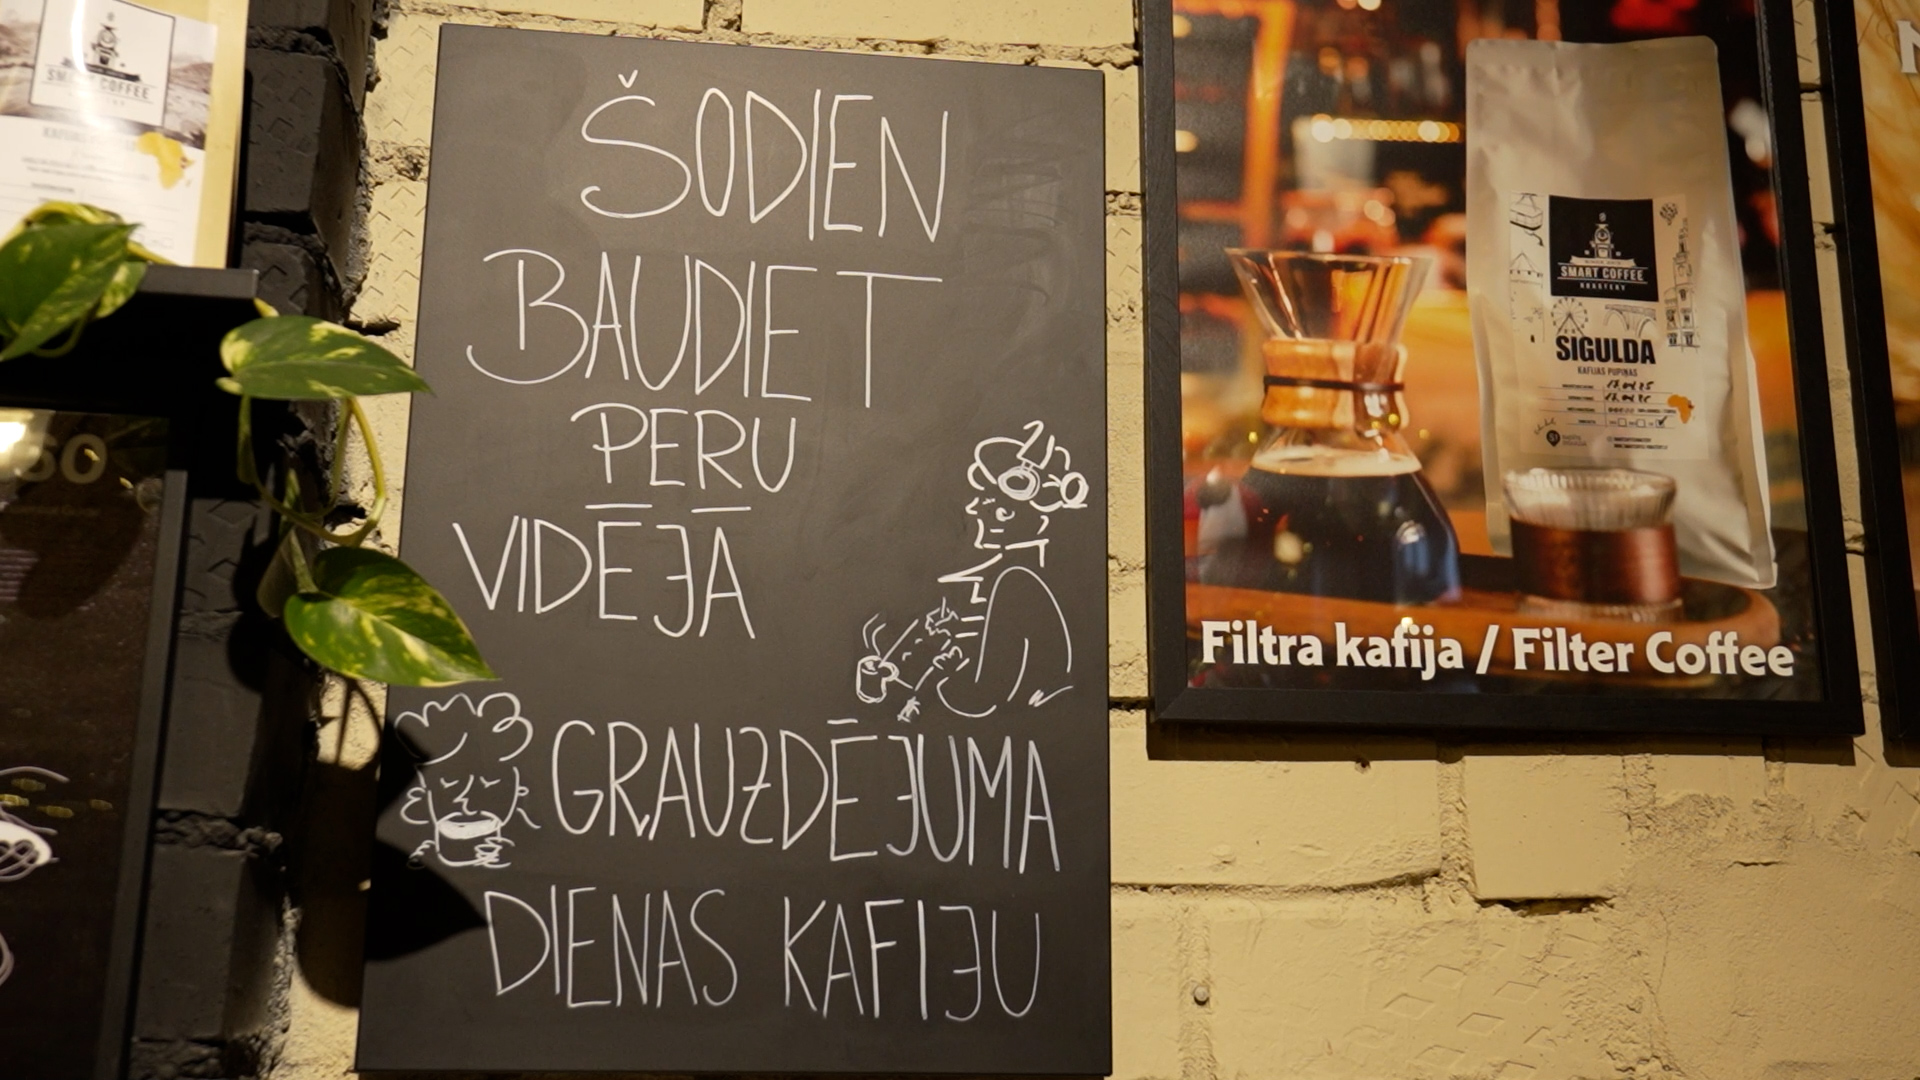 ŠODIEN
BAUDIET
PERU
VIDĒJĀ
GRAUZDĒJUMA
DIENAS KAFIJU
SMART COFFEE
ROASTERY
SIGULDA
KAFIJAS PUPIŅAS
Filtra kafija / Filter Coffee
SMART COFFEE